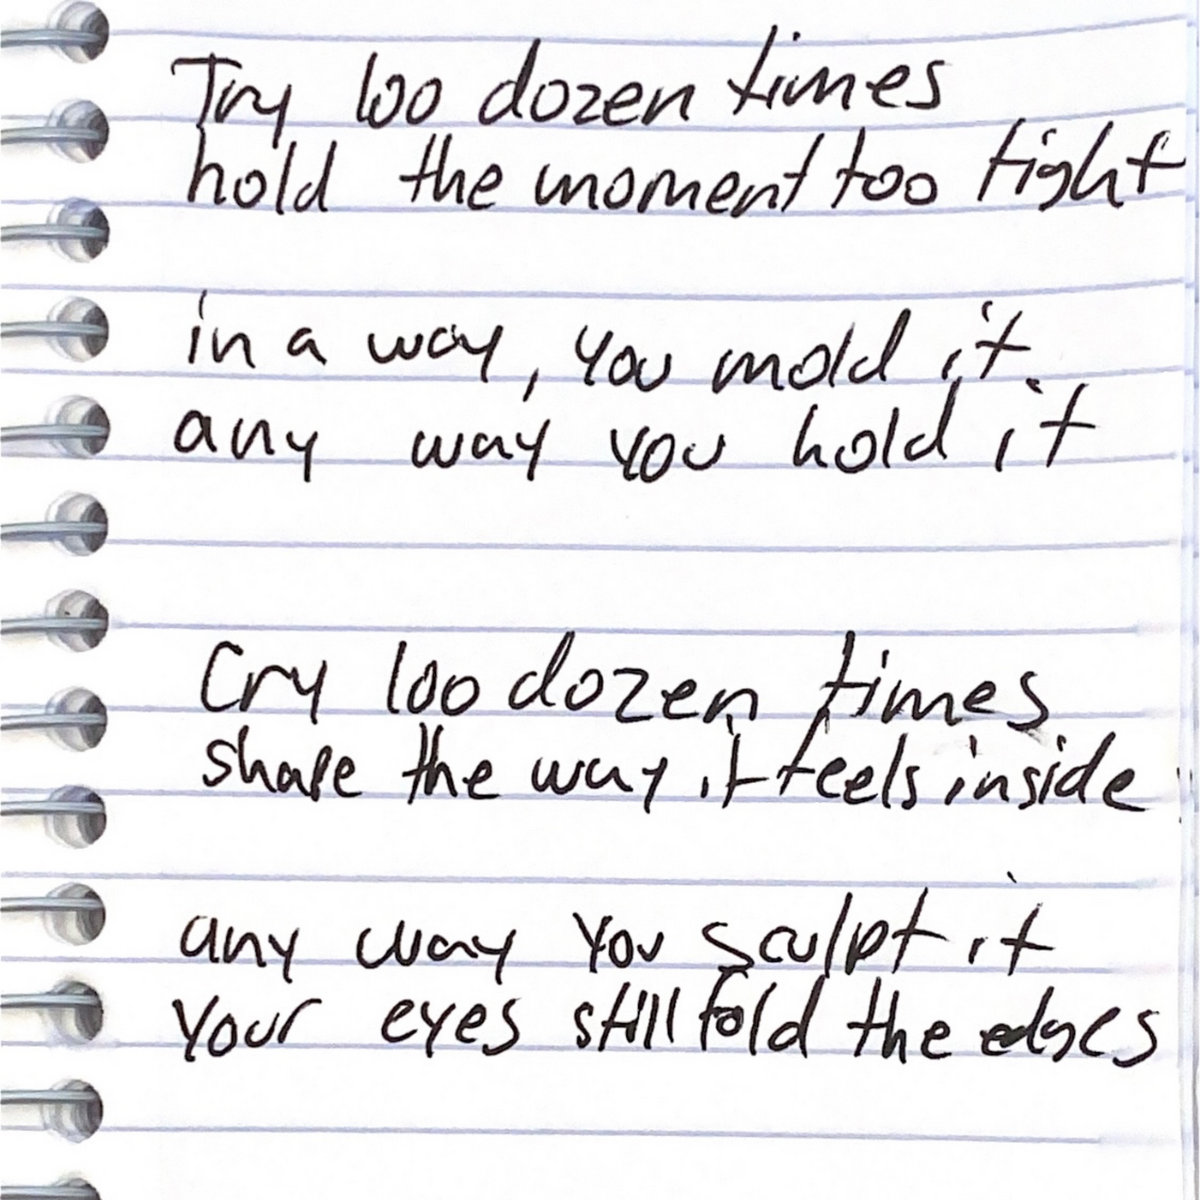 Try 100 dozen times
hold the moment too tight
in a way, you mold it
any way you hold it
Cry 100 dozen times
share the way it feels inside
any way you sculpt it
Your eyes still fold the edges